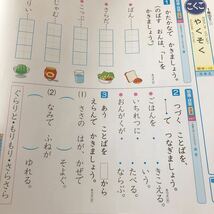 こくご
やくそく
1 かたかなで かきましょう。
(のばす おんは、「ー」を
かきましょう。)
ぱん
2 つづく ことばを、
——で つなぎましょう。
ごはんを・
いちれつに・
おんがくが・
・きこえる。
・ならぶ。
・たべる。
3 あう ことばを □から
えらんで かきましょう。
(1) ささの はが かぜで
( )そよぐ。
(2) なみで ふねが
( )ゆれる。
ぐらりと・もりもり・さらさら